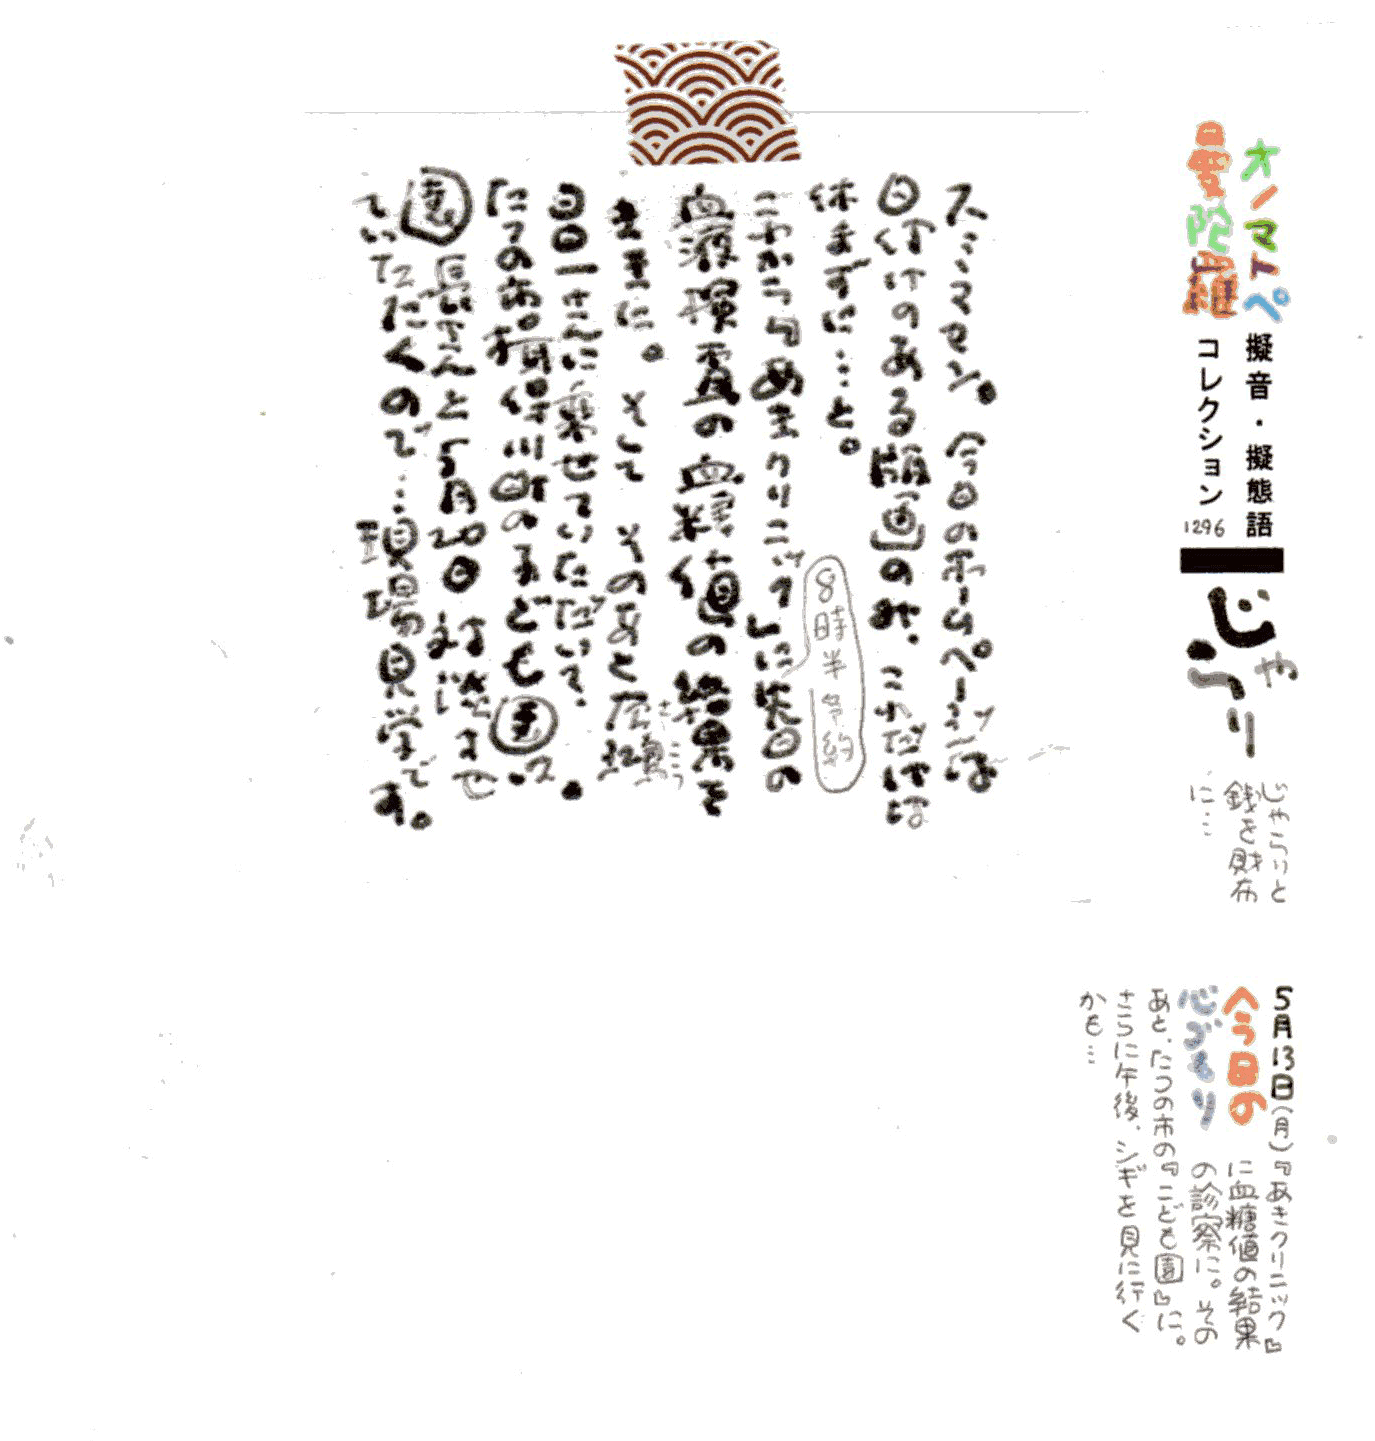 オノマトペ
曼陀羅
擬音・擬態語
コレクション
1296
じゃらり
じゃらりと
銭を財布
に…
スミマセン。今日のホームページは
日付けのある版画のみ、これだけは
休まずに…と。
これから『あきクリニック』に先日の
8時半予約
血液検査の血糖値の結果を
ききに。そして そのあと
さんに乗せていただいて、
たつの市 揖保川町のこども園へ。
園長さんと5月20日 対談させ
ていただくので…現場見学です。
5月13日(月)
今日の
心づもり
『あきクリニック』
に血糖値の結果
の診察に。その
あと、たつの市の『こども園』に。
さらに午後、シギを見に行く
かも…